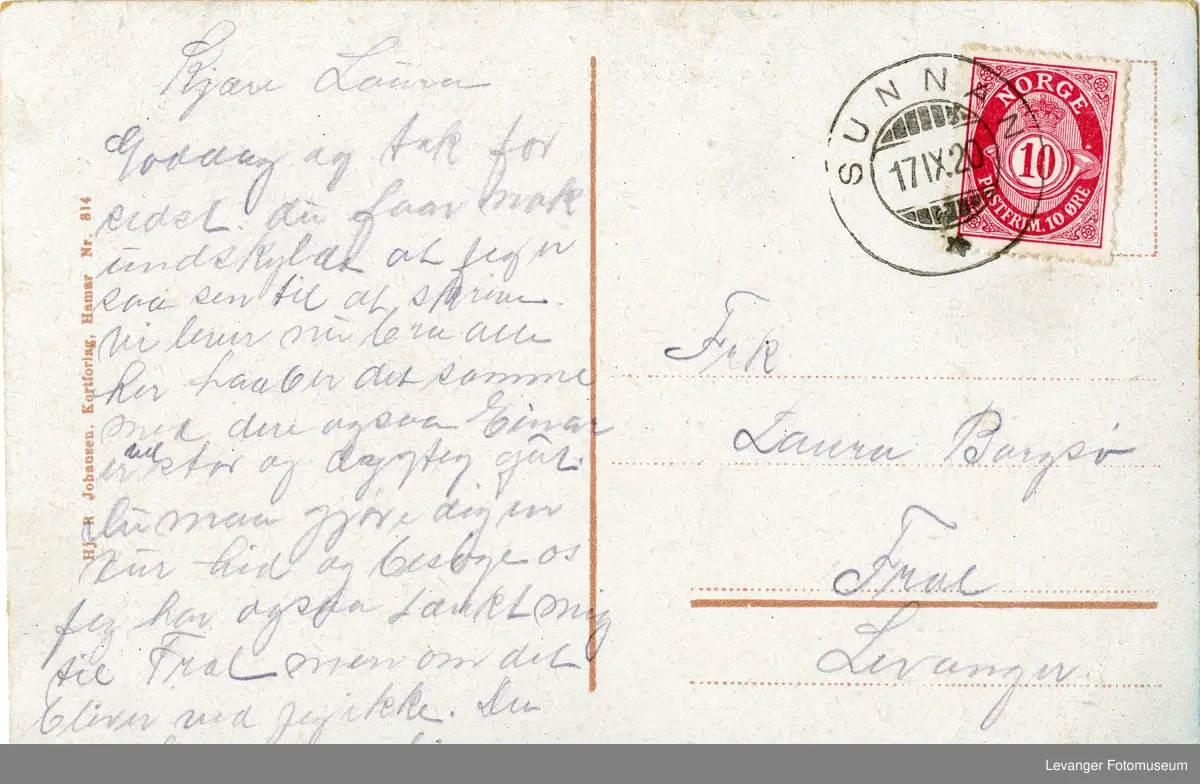 Kjære Laura
Goddag og tak for
sidst. du faar nok
undskylde at jeg er
saa sen til at skrive.
Vi lever nu bra alle
her haaber det samme
med dere ogsaa Einar
er stor og
du maa gjøre dig en
tur hid og besøge os
jeg har ogsaa tænkt mig
til Frol men om det
bliver ved jeg ikke. Du
Hj. R. Johansen, Kortforlag, Hamar Nr. 814
SUNNAN
17 IX. 20
NORGE
10
POSTFRIM. 10 ØRE
Frk
Laura Borgsø
Frol
Levanger.
Levanger Fotomuseum